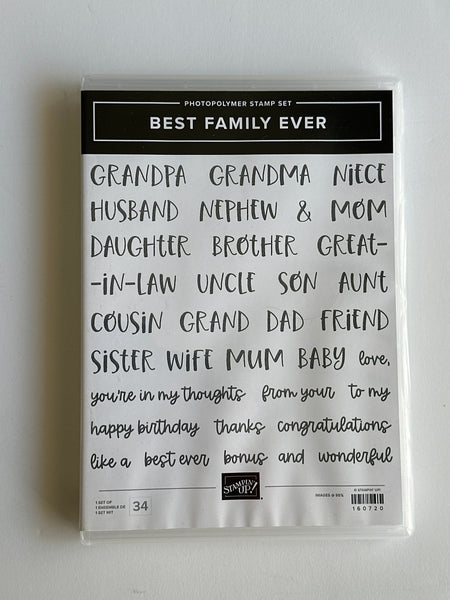 PHOTOPOLYMER STAMP SET
BEST FAMILY EVER
GRANDPA GRANDMA NiECE
HUSBAND NEPHEW & MOM
DAUGHTER BROTHER GREAT-
-iN-LAW UNCLE SON AUNT
COUSiN GRAND DAD FRiEND
SiSTER WiFE MUM BABY love,
you're in my thoughts from your to my
happy birthday thanks congratulations
like a best ever bonus and wonderful
1 SET OF
1 ENSEMBLE DE
1 SET MIT
34
STAMPIN' UP!
IMAGES @ 95%
© STAMPIN' UP!
160720